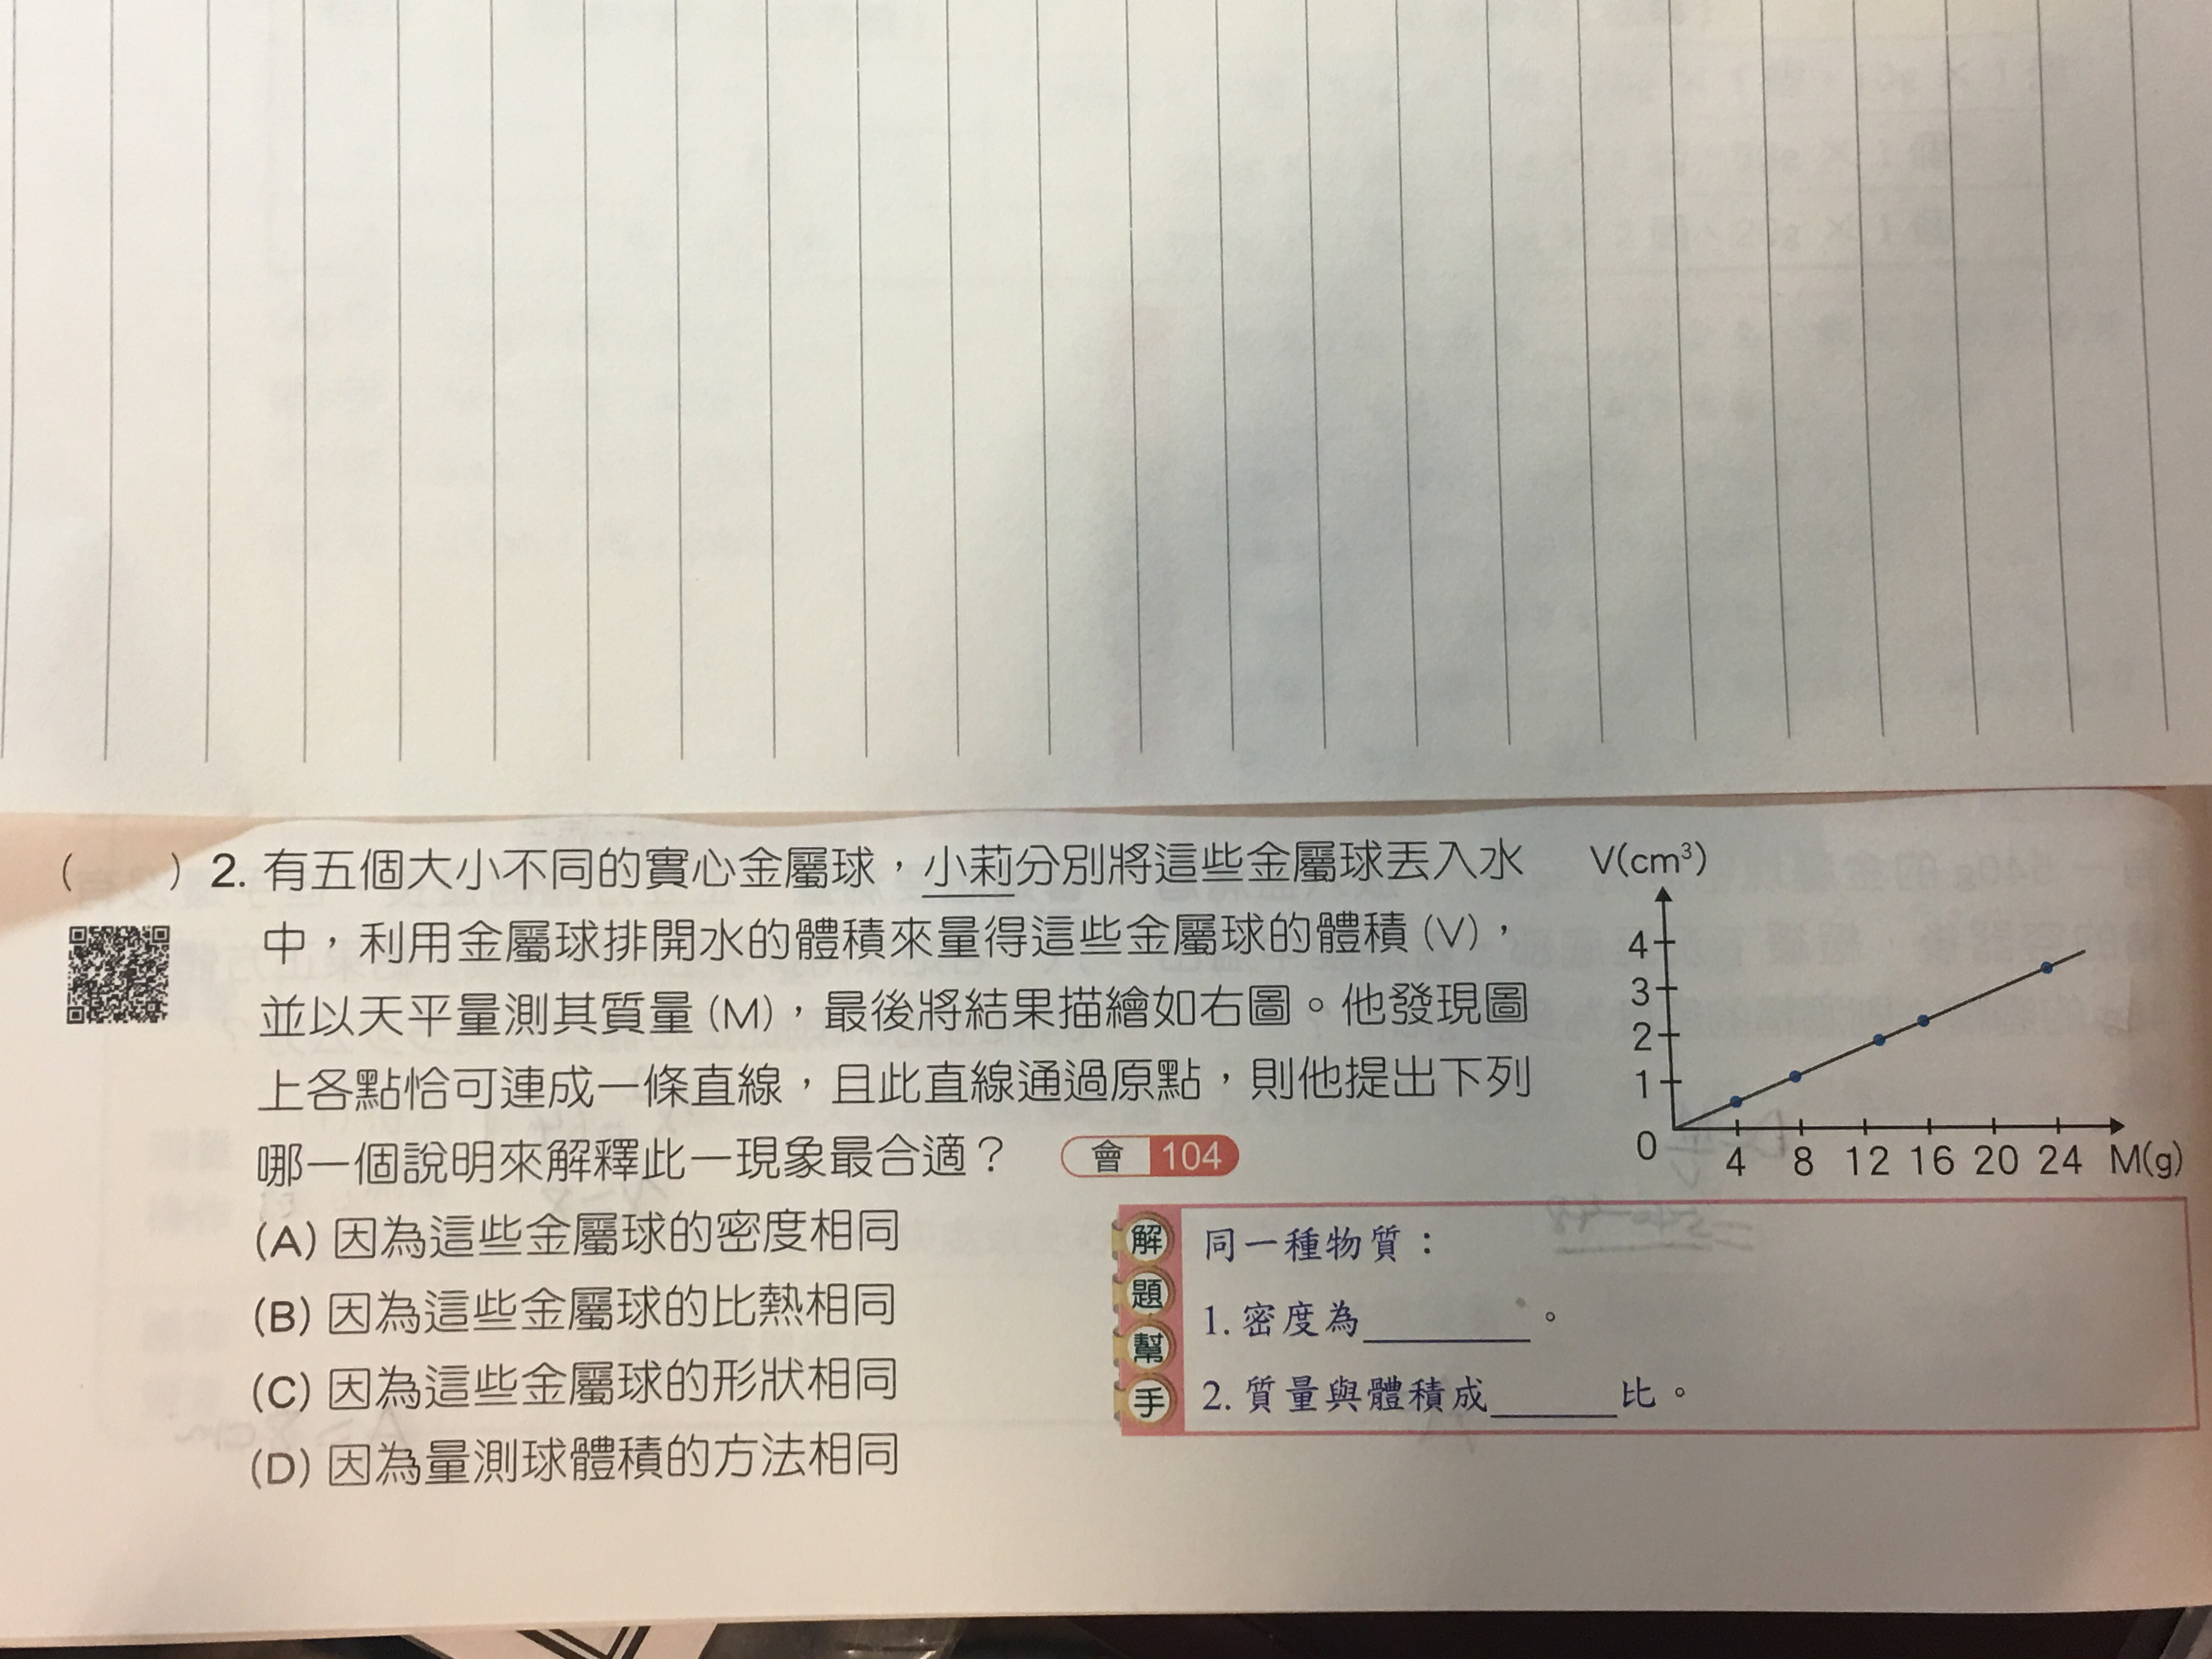 (　) 2. 有五個大小不同的實心金屬球，小莉分別將這些金屬球丟入水
中，利用金屬球排開水的體積來量得這些金屬球的體積 (V)，
並以天平量測其質量 (M)，最後將結果描繪如右圖。他發現圖
上各點恰可連成一條直線，且此直線通過原點，則他提出下列
哪一個說明來解釋此一現象最合適？ 會 104
(A) 因為這些金屬球的密度相同
(B) 因為這些金屬球的比熱相同
(C) 因為這些金屬球的形狀相同
(D) 因為量測球體積的方法相同
V(cm³)
4
3
2
1
0
4 8 12 16 20 24 M(g)
解題幫手
同一種物質：
1. 密度為＿＿＿＿。
2. 質量與體積成＿＿＿比。